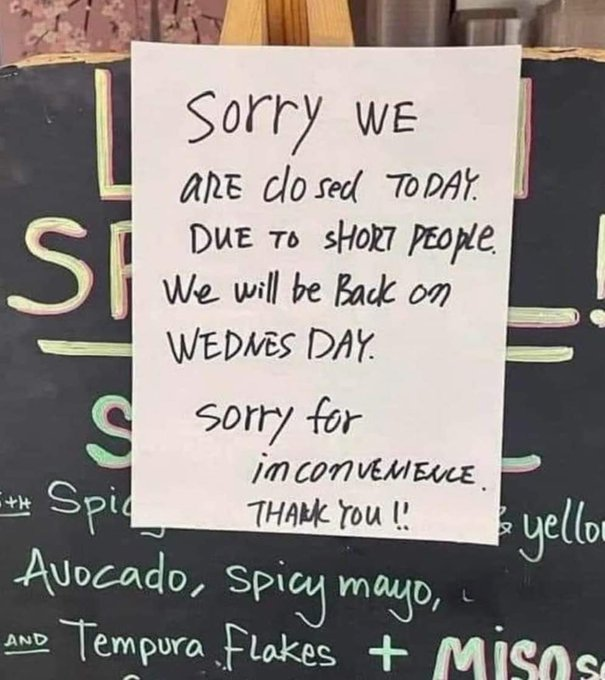 Sorry WE
ARE closed TODAY.
DUE TO SHORT PEOPLE.
We will be Back on
WEDNESDAY.
sorry for
inconvENIENCE.
THANK YOU !!
& yello
Avocado, spicy mayo,
AND Tempura Flakes + MISO